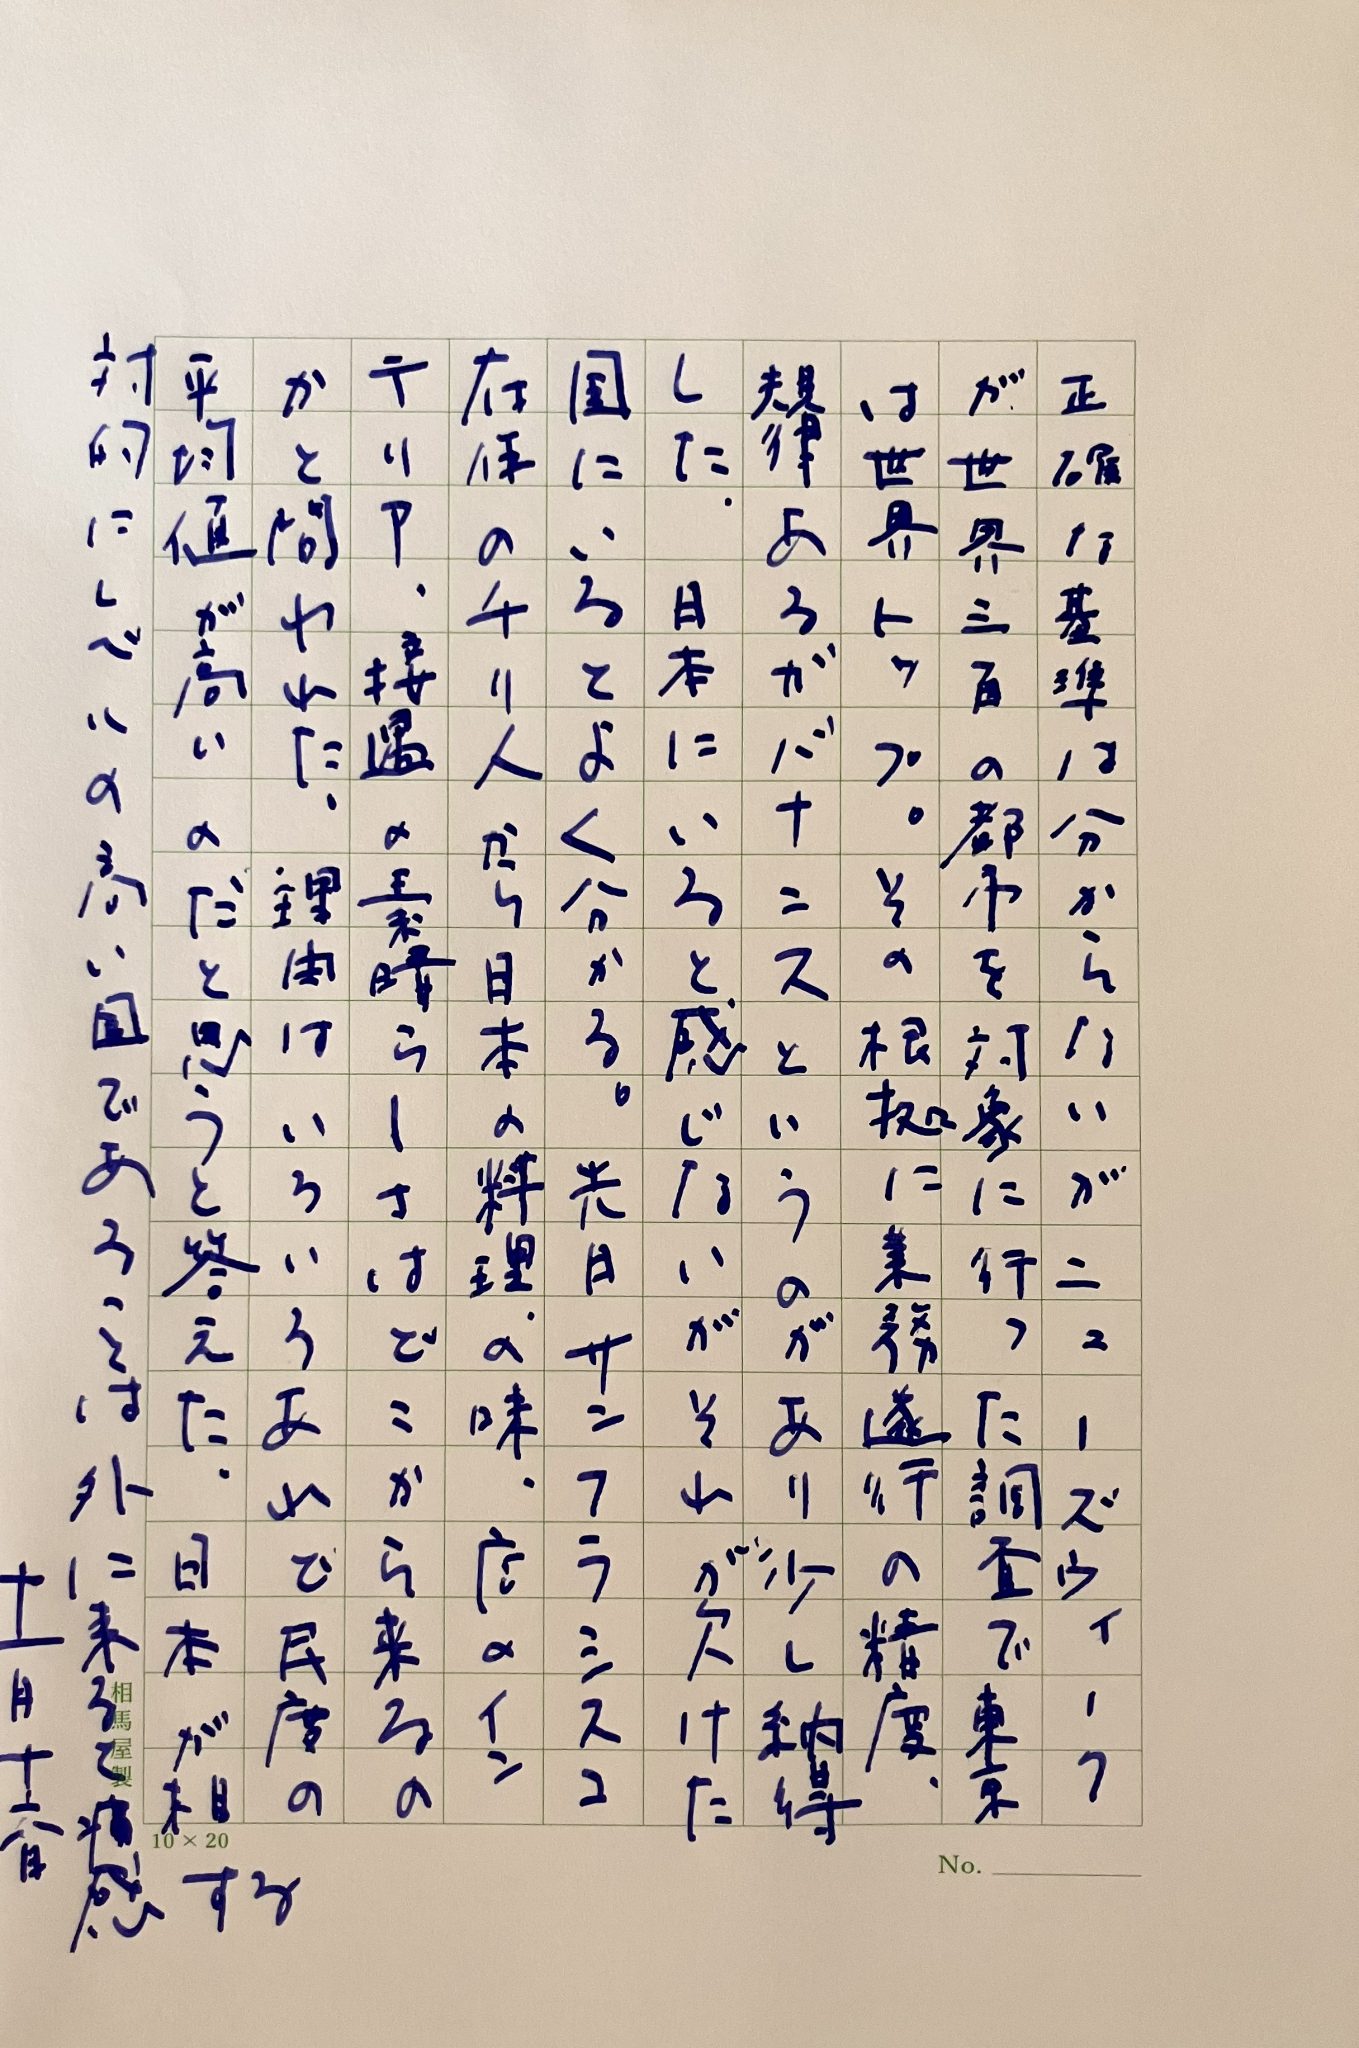 正確な基準は分からないがニューズウィーク
が世界三百の都市を対象に行った調査で東京
は世界トップ。その根拠に業務遂行の精度、
規律あるがバナンスというのがあり少し納得
した。日本にいると感じないがそれが欠けた
国にいるとよく分かる。先日サンフランシスコ
在住のチリ人から日本の料理の味、店のイン
テリア、接遇の素晴らしさはどこから来るの
かと問われた。理由はいろいろあれで民度の
平均値が高いのだと思うと答えた。日本が相
対的にレベルの高い国であることは外に来ると痛感する
十一月十六日
相馬屋製
10×20
No.